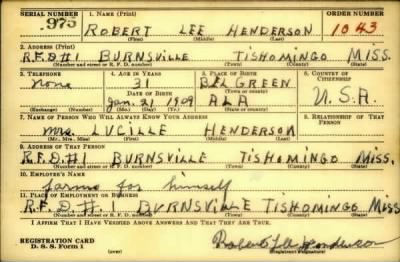 SERIAL NUMBER 1. NAME (Print) ORDER NUMBER
975 ROBERT LEE HENDERSON 1043
(First) (Middle) (Last)
2. ADDRESS (Print)
R.F.D#1 BURNSVILLE TISHOMINGO MISS.
(Number and street or R. F. D. number) (Town) (County) (State)
3. TELEPHONE 4. AGE IN YEARS 5. PLACE OF BIRTH 6. COUNTRY OF CITIZENSHIP
None 31 BELGREEN
DATE OF BIRTH (Town or county)
Jan. 21 1909 ALA U.S.A.
(Exchange) (Number) (Mo.) (Day) (Yr.) (State or country)
7. NAME OF PERSON WHO WILL ALWAYS KNOW YOUR ADDRESS 8. RELATIONSHIP OF THAT PERSON
Mrs. LUCILLE HENDERSON
(Mr., Mrs., Miss) (First) (Middle) (Last)
9. ADDRESS OF THAT PERSON
R.F.D.#1 BURNSVILLE TISHOMINGO MISS.
(Number and street or R. F. D. number) (Town) (County) (State)
10. EMPLOYER'S NAME
farms for himself
11. PLACE OF EMPLOYMENT OR BUSINESS
R.F.D.#1 BURNSVILLE TISHOMINGO MISS
(Number and street or R. F. D. number) (Town) (County) (State)
I AFFIRM THAT I HAVE VERIFIED ABOVE ANSWERS AND THAT THEY ARE TRUE.
REGISTRATION CARD
D. S. S. FORM 1 (over) Robert Lee Henderson
(Registrant's signature)